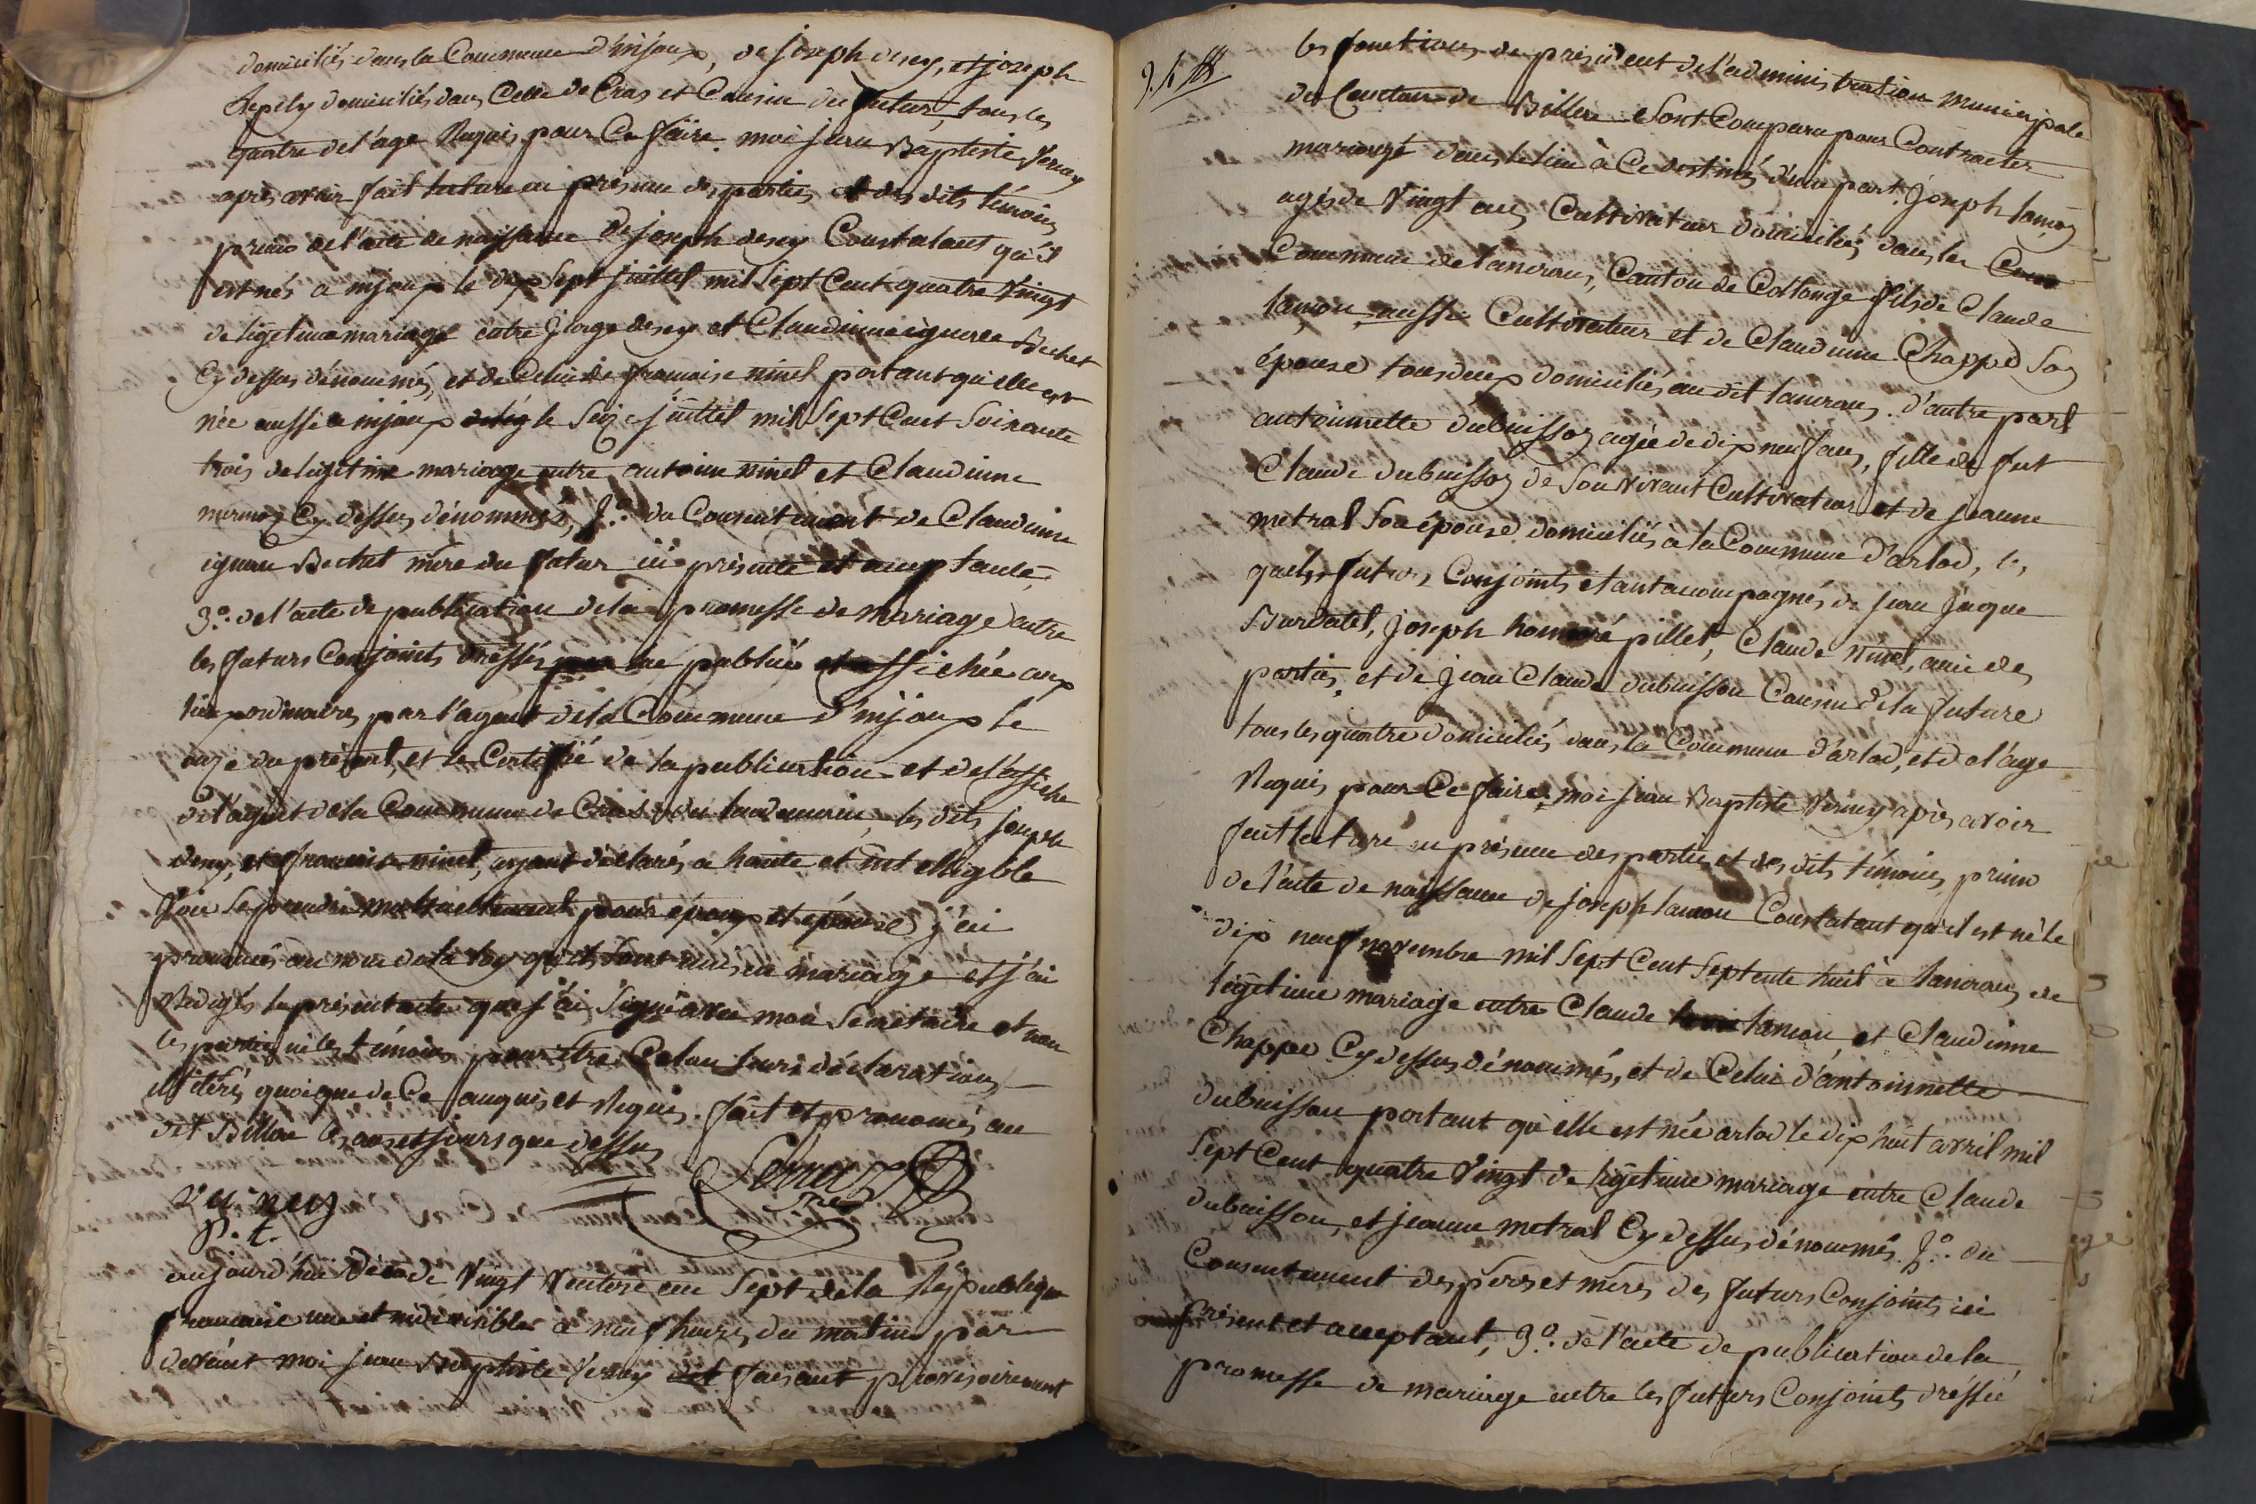 domiciliés dans la Commune d'injoux, de joseph desey, et joseph
Depély domiciliés dans Celle de Cras et Cousin du futur, tous les
quatre de l'age Requis pour Ce faire. moi jean Baptiste Verney
après avoir fait lecture en présence des parties et des dits témoins
primo de l'acte de naissance de joseph desey Constatant qu'il
est nés a injoux le dix Sept juillet mil Sept Cent quatre Vingt
de légetime mariage entre jorge desey et Claudinne ignarée Bechet
Cy dessus dénoumés, et de Celui de francoise ninet portant qu'elle est
née aussi a injoux le Seize juillet mil Sept Cent Soixante
trois de légetime mariage entre antoine ninet et Claudinne
mermoz Cy dessus dénommés, 2º. du Consentement de Claudinne
ignaré Bechet mère du futur ici présente et acceptante,
3º. de l'acte de publication de la promesse de mariage entre
les futurs Conjoints dressés publiée et affichée aux
lieux ordinaires par l'agent de la Commune d'injoux le
onze du présent, et le Certifié de la publication et de l'affiche
de l'agent de la Commune de Cras du landemain, les dits joseph
desey, et francoise ninet, ayant déclarés a haute et intelligible
Voix Se prendre mutuellement pour époux et épouse j'ai
pronnoncés au nom de la loy qu'ils Sont unis en mariage et j'ai
Rédigés le présent acte que j'ai Signé avec mon Sécrétaire et non
les parties ni les témoins pour être Selon leurs déclarations
illitérés, quoique de Ce enquis et Requis. fait et pronnoncés au
dit Billiat les ans et jours que dessus
Verney
p. t.
aujourd'hui Décade Vingt Ventose an Sept de la République
francaise une et indivisible à neuf heures du matin par
devant moi jean Baptiste Verney faisant provisoirement
les fonctions de président de l'administration municipale
du Canton de Billiat Sont Comparu pour Contracter
mariage dans le lieu à Ce destinés d'une part. joseph lamon
agés de Vingt ans Cultivateur domiciliés dans la
Commune de lancrans, Canton de Collonge fils de Claude
lamon aussi Cultivateur et de Claudinne Chappé Son
épouse tous deux domiciliés au dit lancrans. d'autre part
antoinnette dubuisson agée de dix neuf ans, fille de fut
Claude dubuisson de Son Vivant Cultivateur et de jeanne
metral Son épouse domiciliés à la Commune d'arlod, les
quels futurs Conjoints étant accompagnés de jean jaque
Burdalet, joseph honnoré pillet, Claude ninet, amis des
parties, et de jean Claude dubuisson Cousin de la future
tous les quatre domiciliés dans la Commune d'arlod, et de l'age
Requis pour Ce faire, moi jean Baptiste Verney après avoir
fait lecture en présence des parties et des dits témoins, primo
de l'acte de naissance de joseph lamon Constatant qu'il est né le
dix neuf novembre mil Sept Cent Septente huit à lancrans de
légetime mariage entre Claude lamon, et Claudinne
Chappé Cy dessus dénoumés, et de Celui d'antoinnette
dubuisson portant qu'elle est née arlod le dix huit avril mil
Sept Cent quatre Vingt de légetime mariage entre Claude
dubuisson, et jeanne metral Cy dessus dénoumés. 2º. du
Consentement des pères et mères des futurs Conjoints ici
présent et acceptant, 3º. de l'acte de publication de la
promesse de mariage entre les futurs Conjoints dréssée